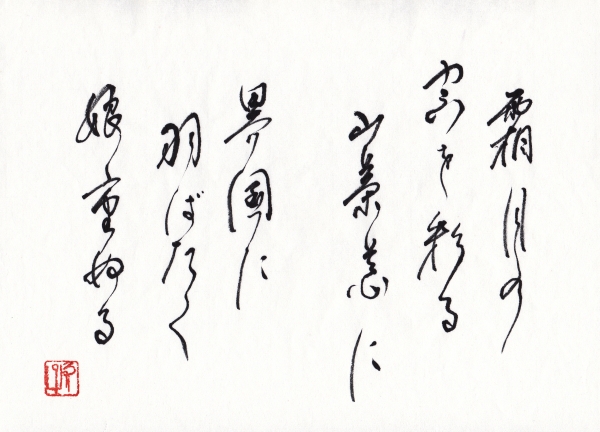 霜月の
窓を彩る
山茶花に
異国に
羽ばたく
娘重ぬる